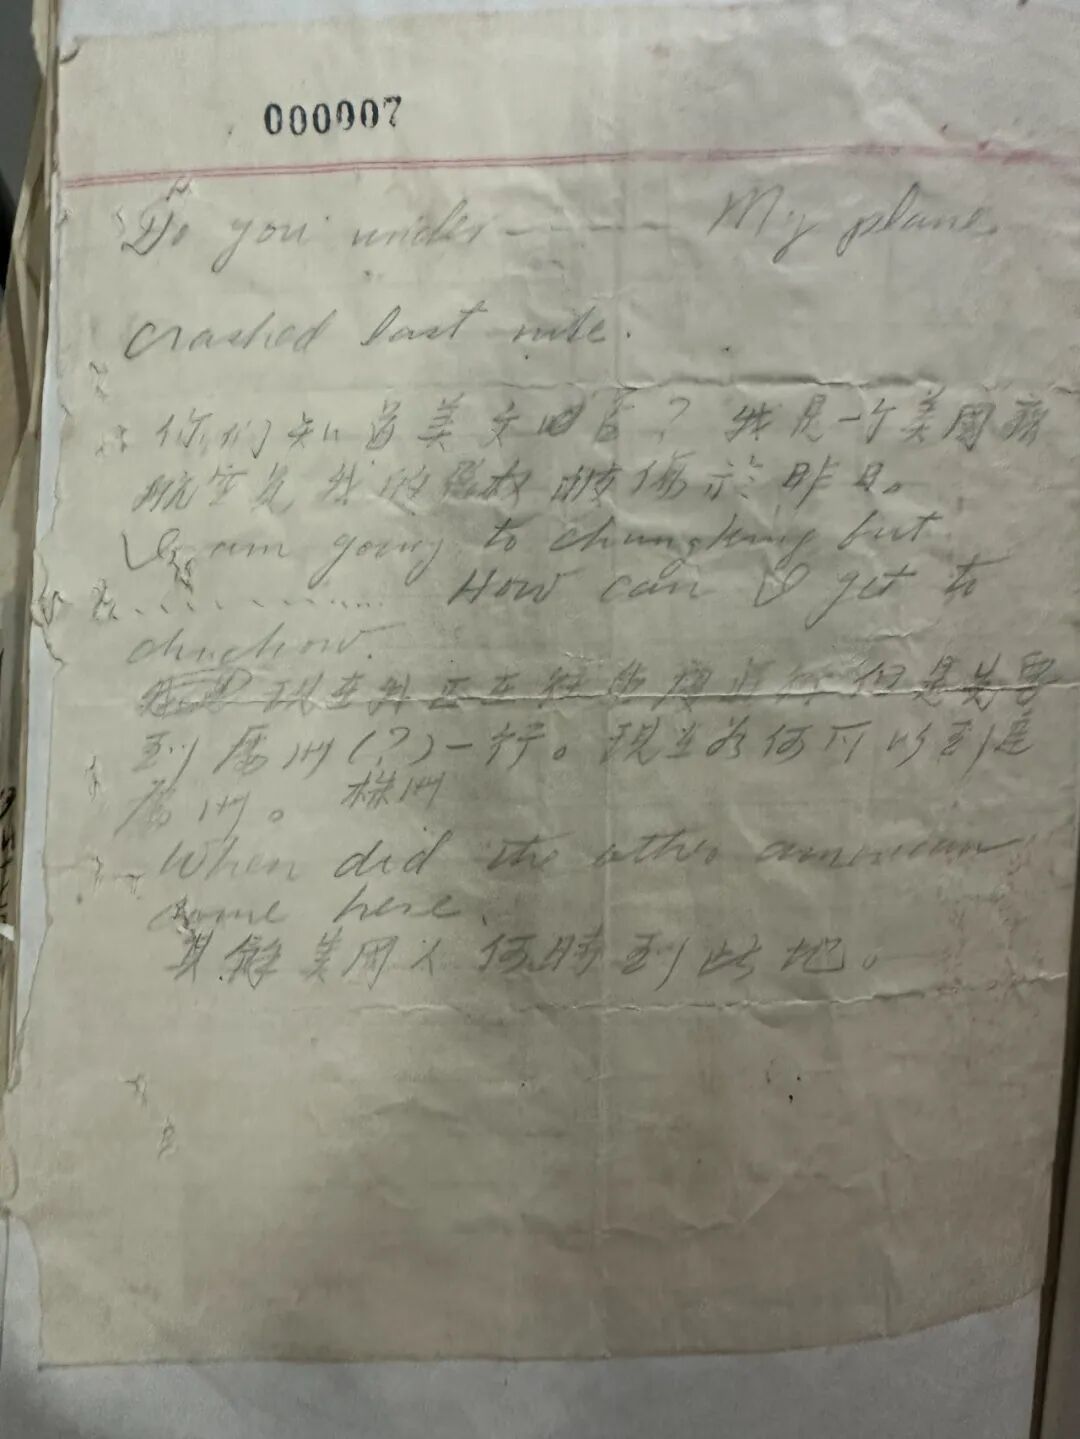 000007
Do you under ---- My plane
crashed last nite.
你们知道美文吗? 我是一个美国
航空员我的 被伤於昨日。
I am going to chungking but
............ How can I get to
chuchow.
现在我正在往 但是
到 州(?)一行。现在为何可以到達
州。 株州
When did the other american
come here.
其餘美国人何時到此地。